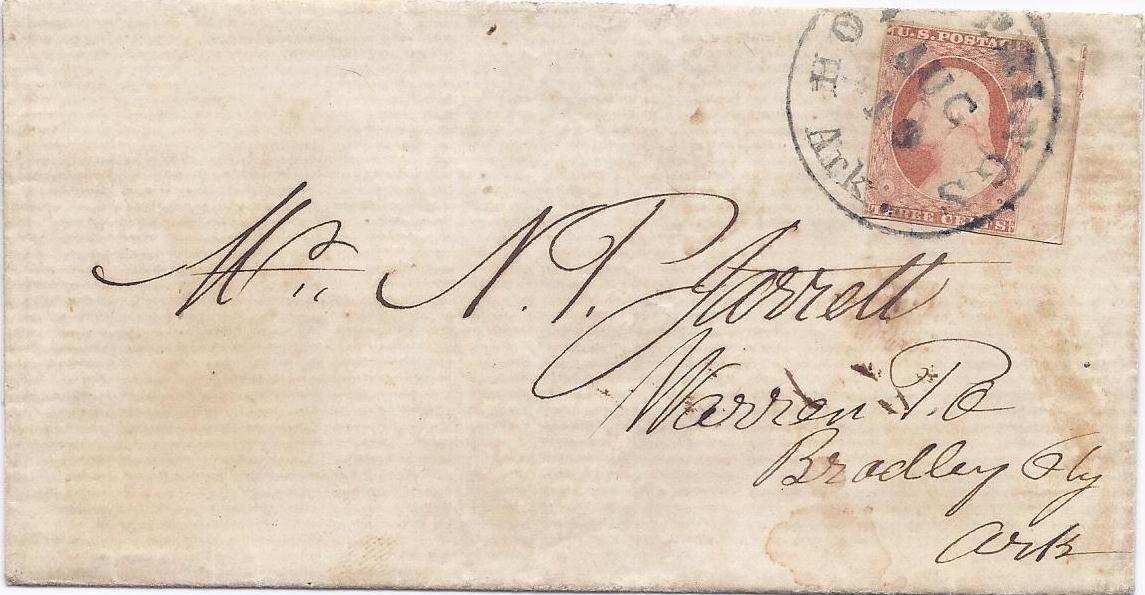 HOT SPRINGS
AUG
18
Ark.
U.S. POSTAGE
THREE CENTS
Mrs. N. P. Jarrett
Warren P.O
Bradley Cty
Ark